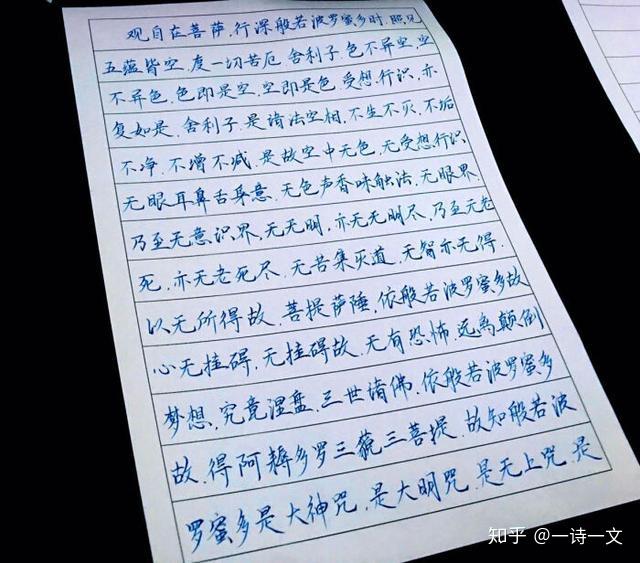 观自在菩萨,行深般若波罗蜜多时,照见
五蕴皆空,度一切苦厄,舍利子,色不异空,空
不异色,色即是空,空即是色,受想,行识,亦
复如是,舍利子,是诸法空相,不生不灭,不垢
不净,不增不减,是故空中无色,无受想行识
无眼耳鼻舌身意,无色声香味触法,无眼界
乃至无意识界,无无明,亦无无明尽,乃至无老
死,亦无老死尽,无苦集灭道,无智亦无得.
以无所得故,菩提萨埵,依般若波罗蜜多故
心无挂碍,无挂碍故,无有恐怖,远离颠倒
梦想,究竟涅盘,三世诸佛,依般若波罗蜜多
故,得阿耨多罗三藐三菩提,故知般若波
罗蜜多是大神咒,是大明咒,是无上咒,是
知乎 @一诗一文